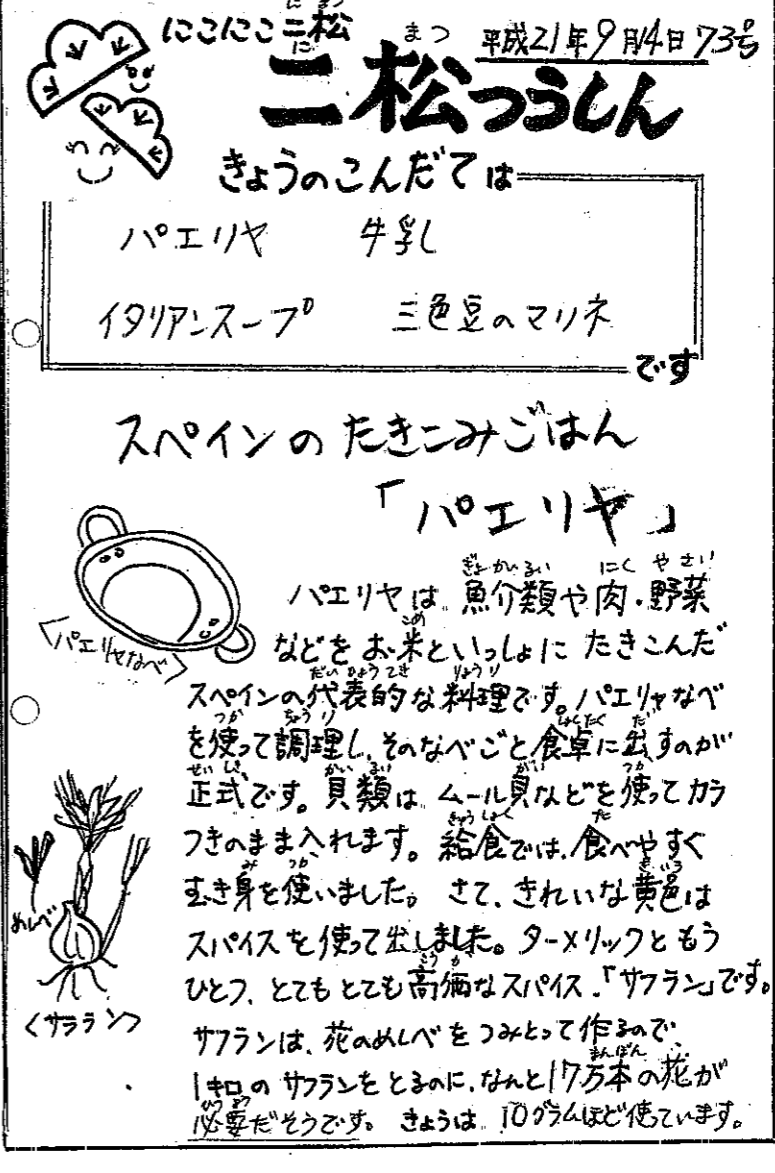 にこにこ二松
平成21年9月14日 73号
二松つうしん
きょうのこんだては
パエリヤ 牛乳
イタリアンスープ 三色豆のマリネ
です
スペインのたきこみごはん
「パエリヤ」
パエリヤは魚介類や肉・野菜
などをお米といっしょにたきこんだ
<パエリヤなべ>
スペインの代表的な料理です。パエリャなべ
を使って調理し、そのなべごと食卓に出すのが
正式です。貝類は、ムール貝などを使ってカラ
つきのまま入れます。給食では、食べやすく
むき身を使いました。さて、きれいな黄色は
めしべ
スパイスを使って出しました。ターメリックともう
ひとつ、とてもとても高価なスパイス、「サフラン」です。
<サフラン>
サフランは、花のめしべをつみとって作るので、
1キロのサフランをとるのに、なんと17万本の花が
必要だそうです。きょうは、10グラムほど使っています。